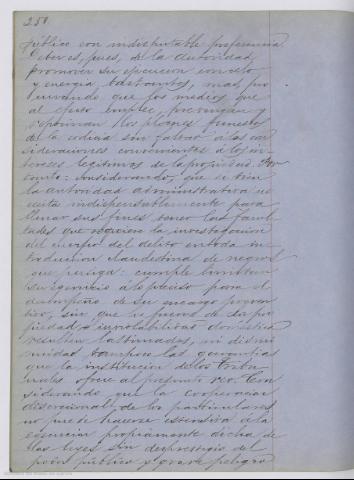 250
público con indisputable preferencia
Deber es, pues, de la autoridad,
promover su ejecucion con celo
y energia bastantes, mas, pro
curando, que los medios, que
al efecto emplee, prevengan y
repriman los planes funestos
de la codicia sin faltar á las con
sideraciones convenientes á los in
tereses legítimos de la propiedad.
considerando, que si bien
la autoridad administrativa ne
cesita indispensablemente para
llenar sus fines tener las facul
tades que requiere la investigacion
del cuerpo del delito en toda in
troduccion clandestina de negros
que persiga: cumple limitar
su ejercicio á lo preciso para el
desempeño de su encargo preven
tivo, sin que los fueros de la pro
piedad é inviolabilidad doméstica
resulten lastimados, ni dismi
nuidas tampoco las garantías
que la institucion de los Tribu
nales ofrece al presunto reo. Con
siderando que la cooperacion
discrecional de los particulares
no puede hacerse estensiva á la
ejecucion propiamente dicha de
las leyes sin desprestigio del
poder público y grave peligro